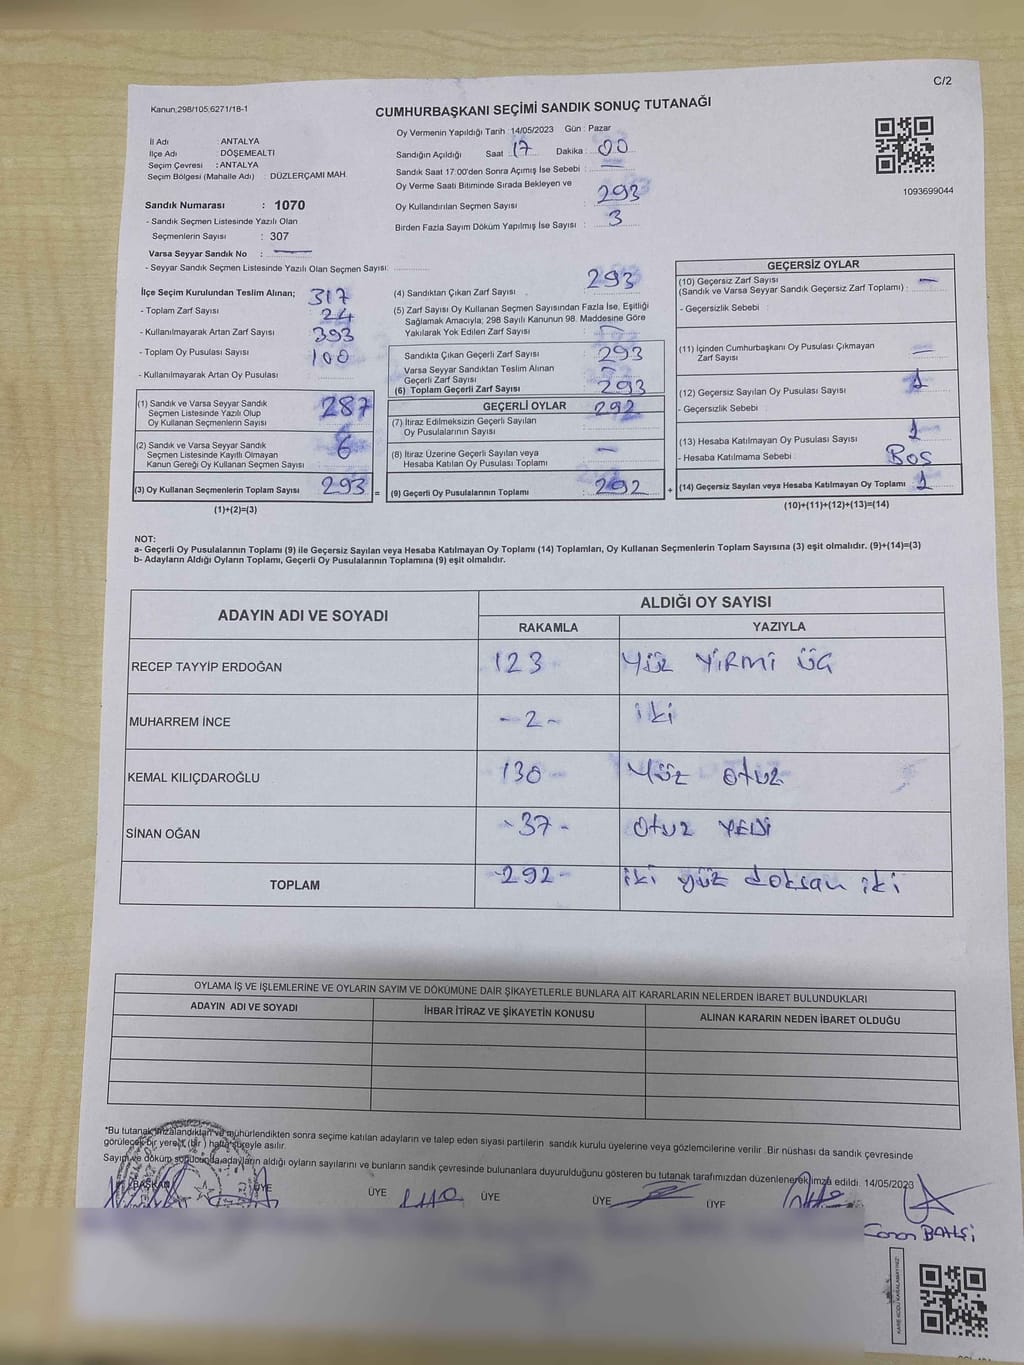 C/2
Kanun,298/105,6271/18-1
CUMHURBAŞKANI SEÇİMİ SANDIK SONUÇ TUTANAĞI
Oy Vermenin Yapıldığı Tarih :14/05/2023 Gün : Pazar
İl Adı : ANTALYA
İlçe Adı : DÖŞEMEALTI
Seçim Çevresi : ANTALYA
Seçim Bölgesi (Mahalle Adı) : DÜZLERÇAMI MAH.
Sandığın Açıldığı Saat 17 Dakika : 00
Sandık Saat 17:00'den Sonra Açımış İse Sebebi : —
Oy Verme Saati Bitiminde Sırada Bekleyen ve
Oy Kullandırılan Seçmen Sayısı : 293
Birden Fazla Sayım Döküm Yapılmış İse Sayısı : 3
1093699044
Sandık Numarası : 1070
- Sandık Seçmen Listesinde Yazılı Olan
Seçmenlerin Sayısı : 307
Varsa Seyyar Sandık No : —
- Seyyar Sandık Seçmen Listesinde Yazılı Olan Seçmen Sayısı:
İlçe Seçim Kurulundan Teslim Alınan; 317
- Toplam Zarf Sayısı : 24
- Kullanılmayarak Artan Zarf Sayısı : 393
- Toplam Oy Pusulası Sayısı : 100
- Kullanılmayarak Artan Oy Pusulası
(1) Sandık ve Varsa Seyyar Sandık
Seçmen Listesinde Yazılı Olup
Oy Kullanan Seçmenlerin Sayısı : 287
(2) Sandık ve Varsa Seyyar Sandık
Seçmen Listesinde Kayıtlı Olmayan
Kanun Gereği Oy Kullanan Seçmen Sayısı : 6
(3) Oy Kullanan Seçmenlerin Toplam Sayısı : 293 =
(1)+(2)=(3)
(4) Sandıktan Çıkan Zarf Sayısı : 293
(5) Zarf Sayısı Oy Kullanan Seçmen Sayısından Fazla İse, Eşitliği
Sağlamak Amacıyla; 298 Sayılı Kanunun 98. Maddesine Göre
Yakılarak Yok Edilen Zarf Sayısı : —
Sandıkta Çıkan Geçerli Zarf Sayısı : 293
Varsa Seyyar Sandıktan Teslim Alınan
Geçerli Zarf Sayısı : —
(6) Toplam Geçerli Zarf Sayısı : 293
GEÇERLİ OYLAR 292
(7) İtiraz Edilmeksizin Geçerli Sayılan
Oy Pusulalarının Sayısı :
(8) İtiraz Üzerine Geçerli Sayılan veya
Hesaba Katılan Oy Pusulası Toplamı : —
(9) Geçerli Oy Pusulalarının Toplamı : 292 +
GEÇERSİZ OYLAR
(10) Geçersiz Zarf Sayısı
(Sandık ve Varsa Seyyar Sandık Geçersiz Zarf Toplamı) : —
- Geçersizlik Sebebi :
(11) İçinden Cumhurbaşkanı Oy Pusulası Çıkmayan
Zarf Sayısı : —
(12) Geçersiz Sayılan Oy Pusulası Sayısı : 1
- Geçersizlik Sebebi :
(13) Hesaba Katılmayan Oy Pusulası Sayısı : 1
- Hesaba Katılmama Sebebi : Boş
(14) Geçersiz Sayılan veya Hesaba Katılmayan Oy Toplamı : 1
(10)+(11)+(12)+(13)=(14)
NOT:
a- Geçerli Oy Pusulalarının Toplamı (9) ile Geçersiz Sayılan veya Hesaba Katılmayan Oy Toplamı (14) Toplamları, Oy Kullanan Seçmenlerin Toplam Sayısına (3) eşit olmalıdır. (9)+(14)=(3)
b- Adayların Aldığı Oyların Toplamı, Geçerli Oy Pusulalarının Toplamına (9) eşit olmalıdır.
ADAYIN ADI VE SOYADI ALDIĞI OY SAYISI
RAKAMLA YAZIYLA
RECEP TAYYİP ERDOĞAN 123 YÜZ YİRMİ ÜÇ
MUHARREM İNCE - 2 - iki
KEMAL KILIÇDAROĞLU 130 YÜZ otuz
SİNAN OĞAN - 37 - Otuz YEDİ
TOPLAM - 292 - iki yüz doksan iki
OYLAMA İŞ VE İŞLEMLERİNE VE OYLARIN SAYIM VE DÖKÜMÜNE DAİR ŞİKAYETLERLE BUNLARA AİT KARARLARIN NELERDEN İBARET BULUNDUKLARI
ADAYIN ADI VE SOYADI İHBAR İTİRAZ VE ŞİKAYETİN KONUSU ALINAN KARARIN NEDEN İBARET OLDUĞU
*Bu tutanak imzalandıktan ve mühürlendikten sonra seçime katılan adayların ve talep eden siyasi partilerin sandık kurulu üyelerine veya gözlemcilerine verilir .Bir nüshası da sandık çevresinde
görülecek bir yere 1 (bir ) hafta süreyle asılır.
Sayım ve döküm sonucunda adayların aldığı oyların sayılarını ve bunların sandık çevresinde bulunanlara duyurulduğunu gösteren bu tutanak tarafımızdan düzenlenerek imza edildi. 14/05/2023
BAŞKAN ÜYE ÜYE ÜYE ÜYE ÜYE
BAHŞİ